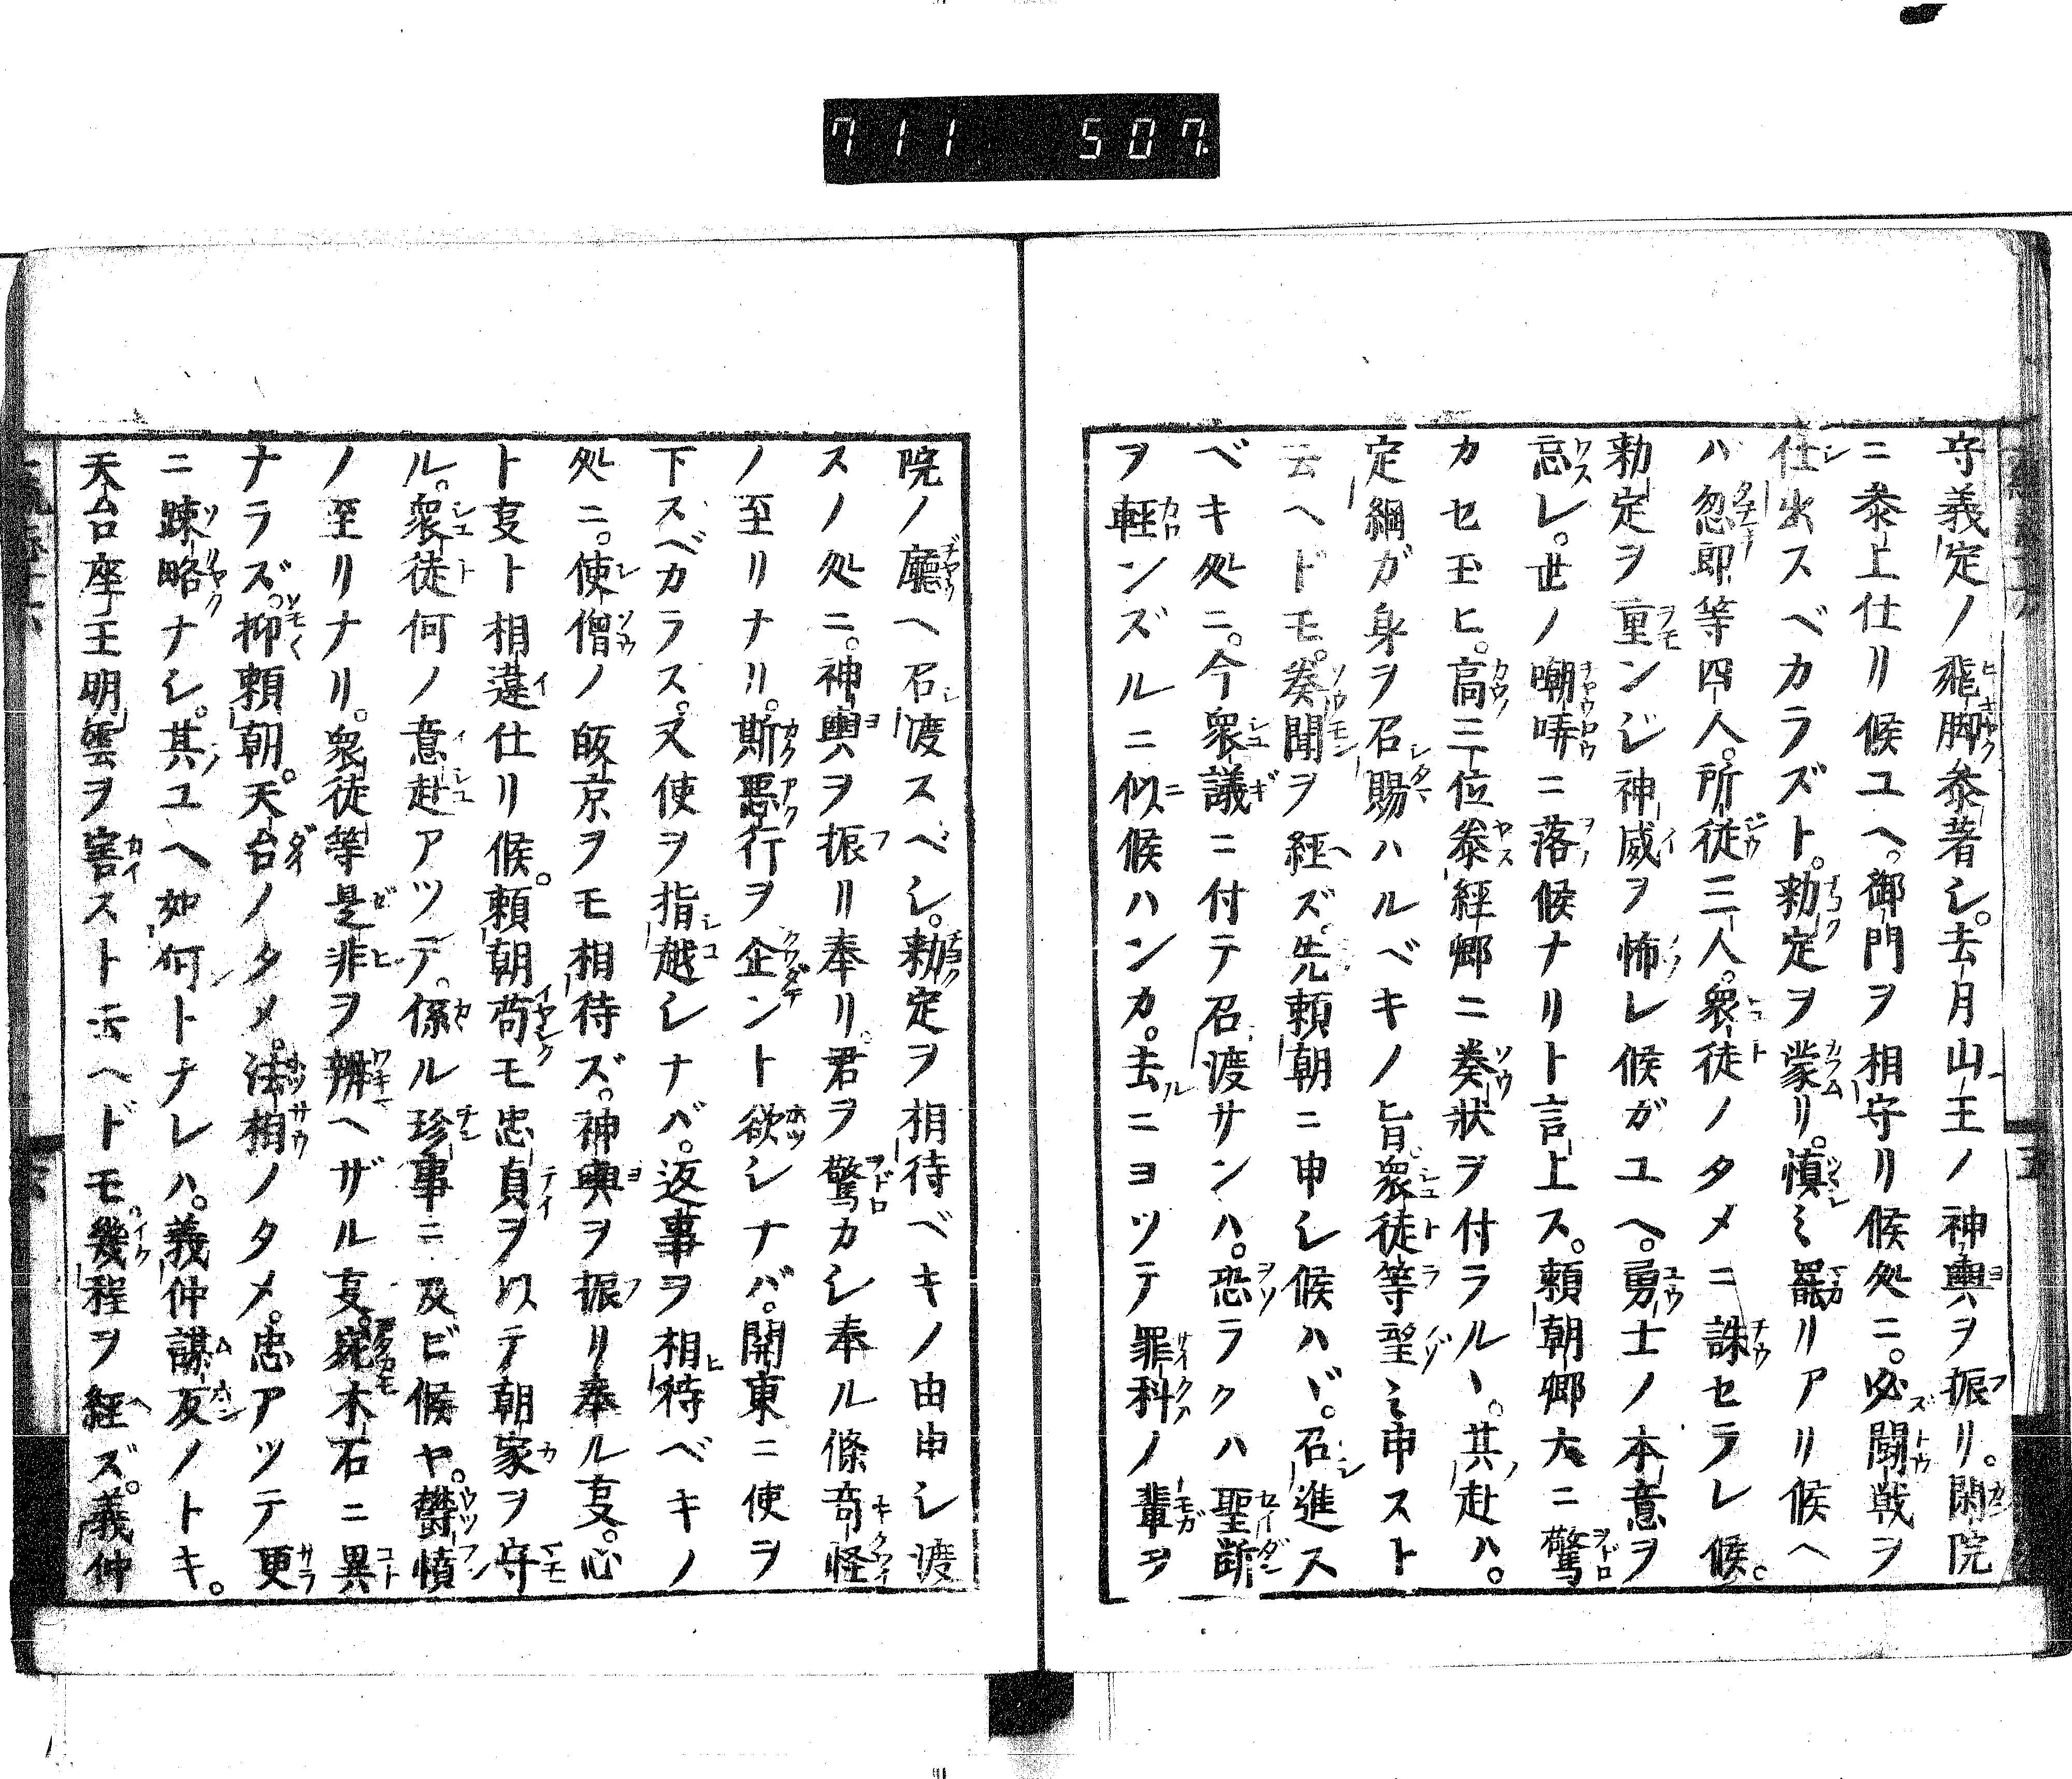 711 507
守義定ノ飛脚参著シ。去月山王ノ神輿ヲ振リ。閑院
ニ参上仕リ候ユヘ。御門ヲ相守リ候処ニ。必闘戦ヲ
仕出スベカラズト。勅定ヲ蒙リ。慎ミ罷リアリ候ヘ
ハ忽郎等四人。所従三人。衆徒ノタメニ誅セラレ候。
勅定ヲ重ンジ神威ヲ怖レ候ガユヘ。勇士ノ本意ヲ
忘レ。世ノ嘲哢ニ落候ナリト言上ス。頼朝卿大ニ驚
カセ玉ヒ。高三位泰経卿ニ奏状ヲ付ラルヽ。其赴ハ。
定綱ガ身ヲ召賜ハルベキノ旨。衆徒等望ミ申スト
云ヘドモ。奏聞ヲ経ズ。先頼朝ニ申シ候ハヾ。召進ス
ベキ処ニ。今衆議ニ付テ召渡サンハ。恐ラクハ聖断
ヲ軽ンズルニ似候ハンカ。去ニヨツテ罪科ノ輩ヲ
院ノ廳ヘ召渡スベシ。勅定ヲ相待ベキノ由申シ渡
スノ処ニ。神輿ヲ振リ奉リ。君ヲ驚カシ奉ル條奇怪
ノ至リナリ。斯悪行ヲ企ント欲シナバ。関東ニ使ヲ
下スベカラス。又使ヲ指越シナバ。返事ヲ相待ベキノ
処ニ。使僧ノ皈京ヲモ相待ズ。神輿ヲ振リ奉ル叓。心
ト叓ト相違仕リ候。頼朝苟モ忠貞ヲ以テ朝家ヲ守
ル。衆徒何ノ意趣アツテ。係ル珍事ニ及ビ候ヤ。欝憤
ノ至リナリ。衆徒等是非ヲ辨ヘザル叓。宛木石ニ異
ナラズ。抑頼朝。天台ノタメ。法相ノタメ。忠アツテ更
ニ踈略ナシ。其ユヘ如何トナレハ。義仲謀反ノトキ。
天台座主明雲ヲ害スト云ヘドモ。幾程ヲ経ズ。義仲